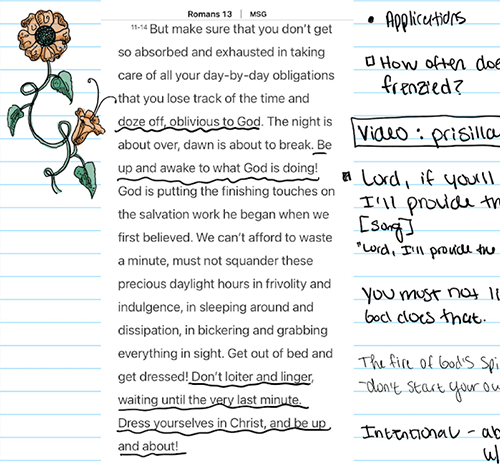 Romans 13 | MSG
11-14 But make sure that you don't get
so absorbed and exhausted in taking
care of all your day-by-day obligations
that you lose track of the time and
doze off, oblivious to God. The night is
about over, dawn is about to break. Be
up and awake to what God is doing!
God is putting the finishing touches on
the salvation work he began when we
first believed. We can't afford to waste
a minute, must not squander these
precious daylight hours in frivolity and
indulgence, in sleeping around and
dissipation, in bickering and grabbing
everything in sight. Get out of bed and
get dressed! Don't loiter and linger,
waiting until the very last minute.
Dress yourselves in Christ, and be up
and about!
• Applications
How often doe
frenzied?
Video: prisilla
Lord, if you'll
I'll provide th
[song]
"Lord, I'll provide the
You must not li
God does that.
The fire of God's Spi
-don't start your ou
Intentional - ab
w/